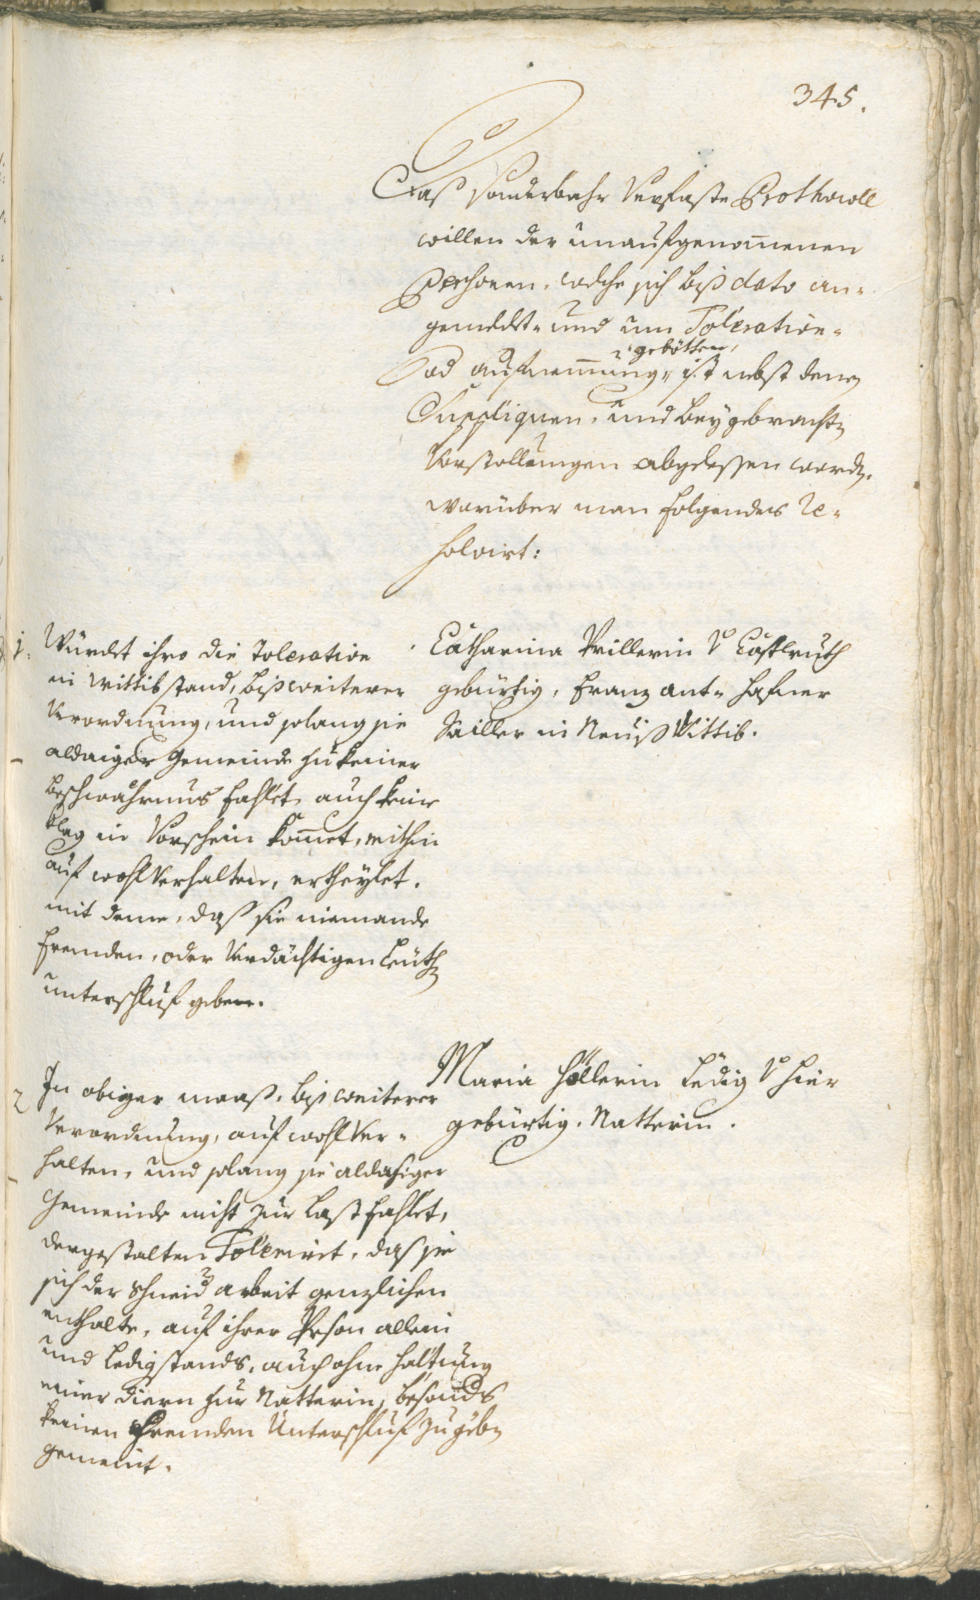 345.
Das sonderbahr Verfaste Prothocoll
willen der unaufgenom̅enen
Persohnen, welche sich biß dato an-
gemeldt- und um Toleration-
Od aufnem̅ung, gebötten, ist nebst denen
Suppliquen, und beygebrachten
Vorstellungen abgelessen worden.
worüber man folgendes re-
solvirt:
1. Würdet ihro die Toleration
in Wittibstand, biß weiterer
Verordnung, und solang sie
aldaiger Gemeinde zu keiner
beschwährnus fahlet, auch keine
klag in Vorschein kom̅et, mithin
auf wohlverhalten, ertheylet.
mit deme, daß sie niemande
fremden, oder Verdächtigen Leüthen
unterschluf geben.
Catharina Prillerin V Castlruth
gebürtig, Franz Ant- Hafner
Sailler in Neuß Wittib.
2 In obiger maaß, biß weiterer
Verordnung, auf wohlver-
halten, und solang sie aldasiger
Gemeinde nicht zur Last fahlet,
dergestalten Toleriret, daß sie
sich der Schneid arbeit genzlichen
enthalte, auf ihrer Person allein
und Ledigstands, auch ohne haltnung
einer diern zur Natterin, besonders
keinen fremden Unterschluf zu geben
gemeint.
Maria Höllerin Ledig V hier
gebürtig. Natterin.